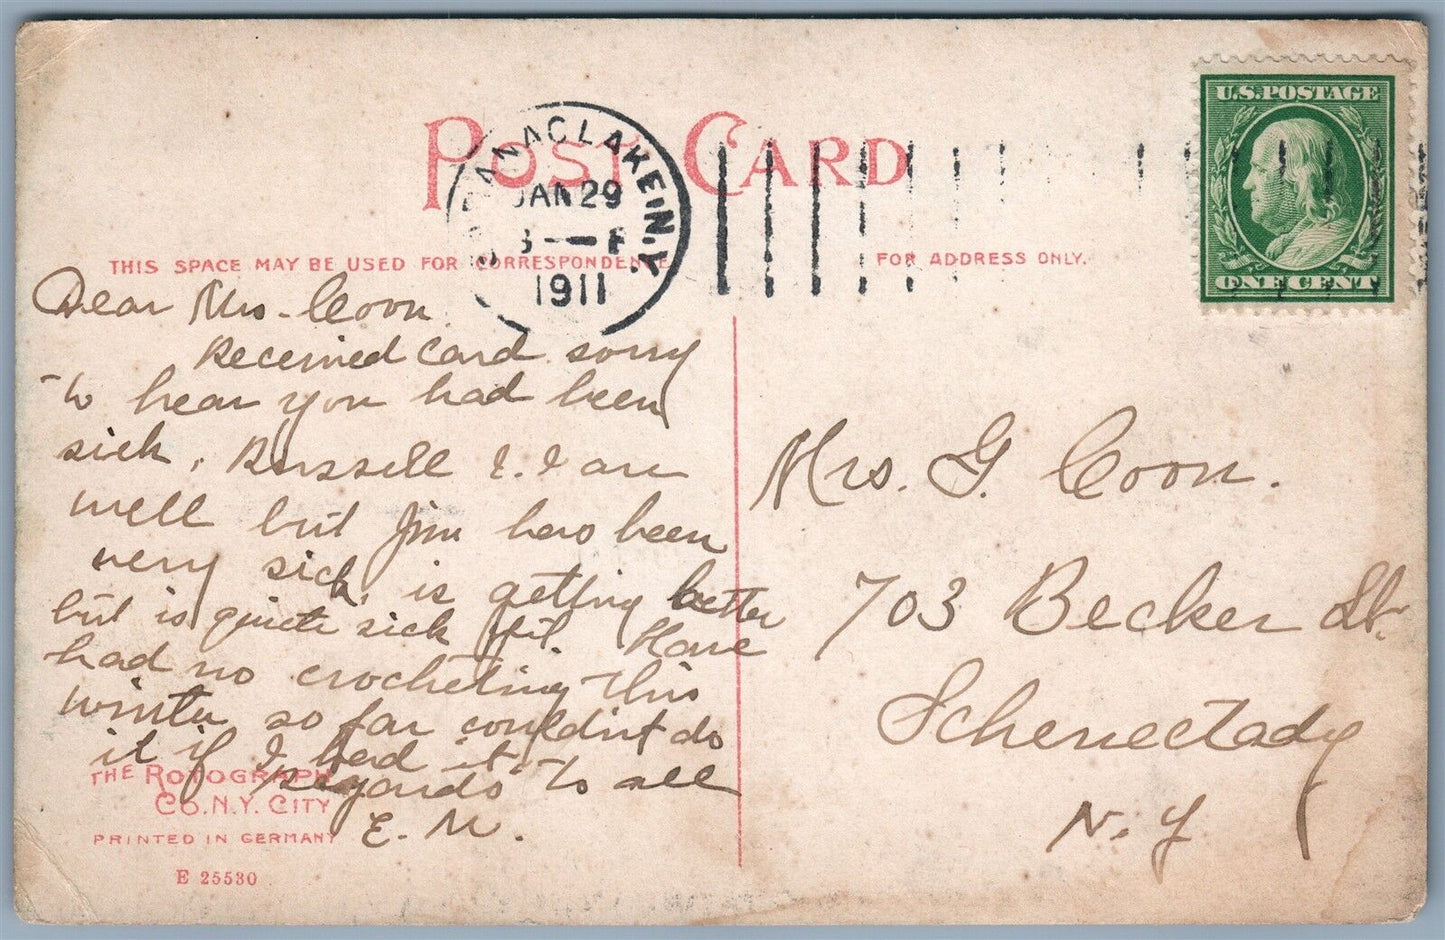 POST CARD
SARANAC LAKE, N.Y.
JAN 29
1911
U.S. POSTAGE
ONE CENT
THIS SPACE MAY BE USED FOR CORRESPONDENCE
FOR ADDRESS ONLY.
Dear Mrs. Coon
Received card sorry
to hear you had been
sick. Russell & I are
well but Jim has been
very sick, is getting better
but is quiete sick yet. Have
had no crocheting this
winter so far couldn't do
it if I had it
Regards to all
E. M.
Mrs. G. Coon.
703 Becker St.
Schenectady
N. Y
THE ROTOGRAPH
CO. N.Y. CITY
PRINTED IN GERMANY
E 25530